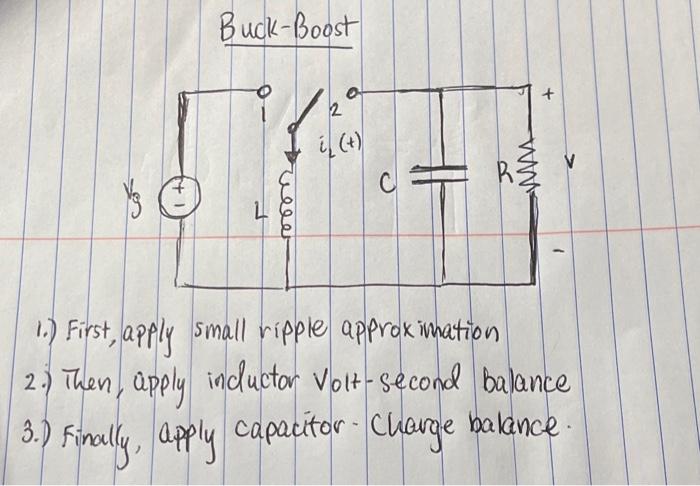 Buck-Boost
1
2
i_L(t)
+
Vg
+
-
L
C
R
V
-
1.) First, apply small ripple approximation
2.) Then, apply inductor Volt-second balance
3.) Finally, apply capacitor-Charge balance.